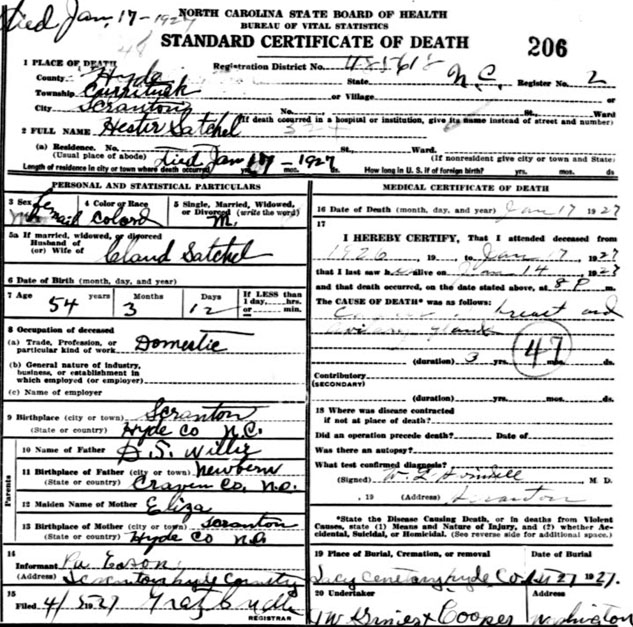 Died Jan. 17 - 1927
NORTH CAROLINA STATE BOARD OF HEALTH
BUREAU OF VITAL STATISTICS
STANDARD CERTIFICATE OF DEATH
206
1 PLACE OF DEATH
Registration District No.
County Hyde State N.C. Register No. 2
Township Currituck or Village
City Scranton No. St., Ward
(If death occurred in a hospital or institution, give its name instead of street and number)
2 FULL NAME Hester Satchel
(a) Residence. No. St., Ward.
(Usual place of abode) Died Jan 17 - 1927 (If nonresident give city or town and State)
Length of residence in city or town where death occurred yrs. mos. ds. How long in U. S. if of foreign birth? yrs. mos. ds.
PERSONAL AND STATISTICAL PARTICULARS
3 Sex
4 Color or Race Colord
5 Single, Married, Widowed, or Divorced (write the word) M.
5a If married, widowed, or divorced
Husband of
(or) Wife of Claud Satchel
6 Date of Birth (month, day, and year)
7 Age 54 years 3 Months 12 Days If LESS than 1 day, hrs. or min.
8 Occupation of deceased
(a) Trade, Profession, or particular kind of work Domestic
(b) General nature of industry, business, or establishment in which employed (or employer)
(c) Name of employer
9 Birthplace (city or town) Scranton
(State or country) Hyde Co N.C.
Parents
10 Name of Father D. S. Willis
11 Birthplace of Father (city or town) Newbern
(State or country) Craven Co. N.C.
12 Maiden Name of Mother Eliza
13 Birthplace of Mother (city or town) Scranton
(State or country) Hyde Co N.C
14
Informant Eason
(Address) Scranton Hyde County
15
Filed 4/5 1927
REGISTRAR
MEDICAL CERTIFICATE OF DEATH
16 Date of Death (month, day, and year) Jan 17 1927
17
I HEREBY CERTIFY, That I attended deceased from
1926, 19 to Jan 17 1927
that I last saw h alive on Jan 14 1927
and that death occurred, on the date stated above, at 8 P m.
The CAUSE OF DEATH* was as follows:
breast and
glands
47
(duration) 3 yrs. mos. ds.
Contributory
(SECONDARY)
(duration) yrs. mos. ds.
18 Where was disease contracted
if not at place of death?
Did an operation precede death? Date of
Was there an autopsy?
What test confirmed diagnosis?
(Signed) M. D.
, 19 (Address) Scranton
*State the Disease Causing Death, or in deaths from Violent Causes, state (1) Means and Nature of Injury, and (2) whether Accidental, Suicidal, or Homicidal. (See reverse side for additional space.)
19 Place of Burial, Cremation, or removal Date of Burial
cemetary Hyde Co 27 1927.
20 Undertaker Address
Cooper